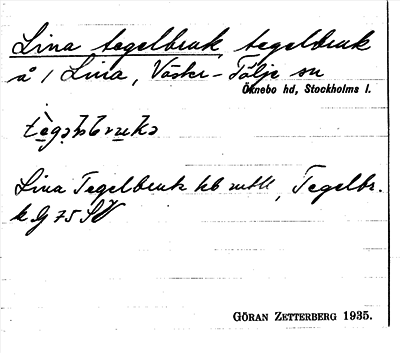 Lina tegelbruk, tegelbruk
å / Lina, Väster-Tälje sn
Öknebo hd, Stockholms l.
Lina Tegelbruk, Tegelbr.
k G 75 SV
GÖRAN ZETTERBERG 1935.